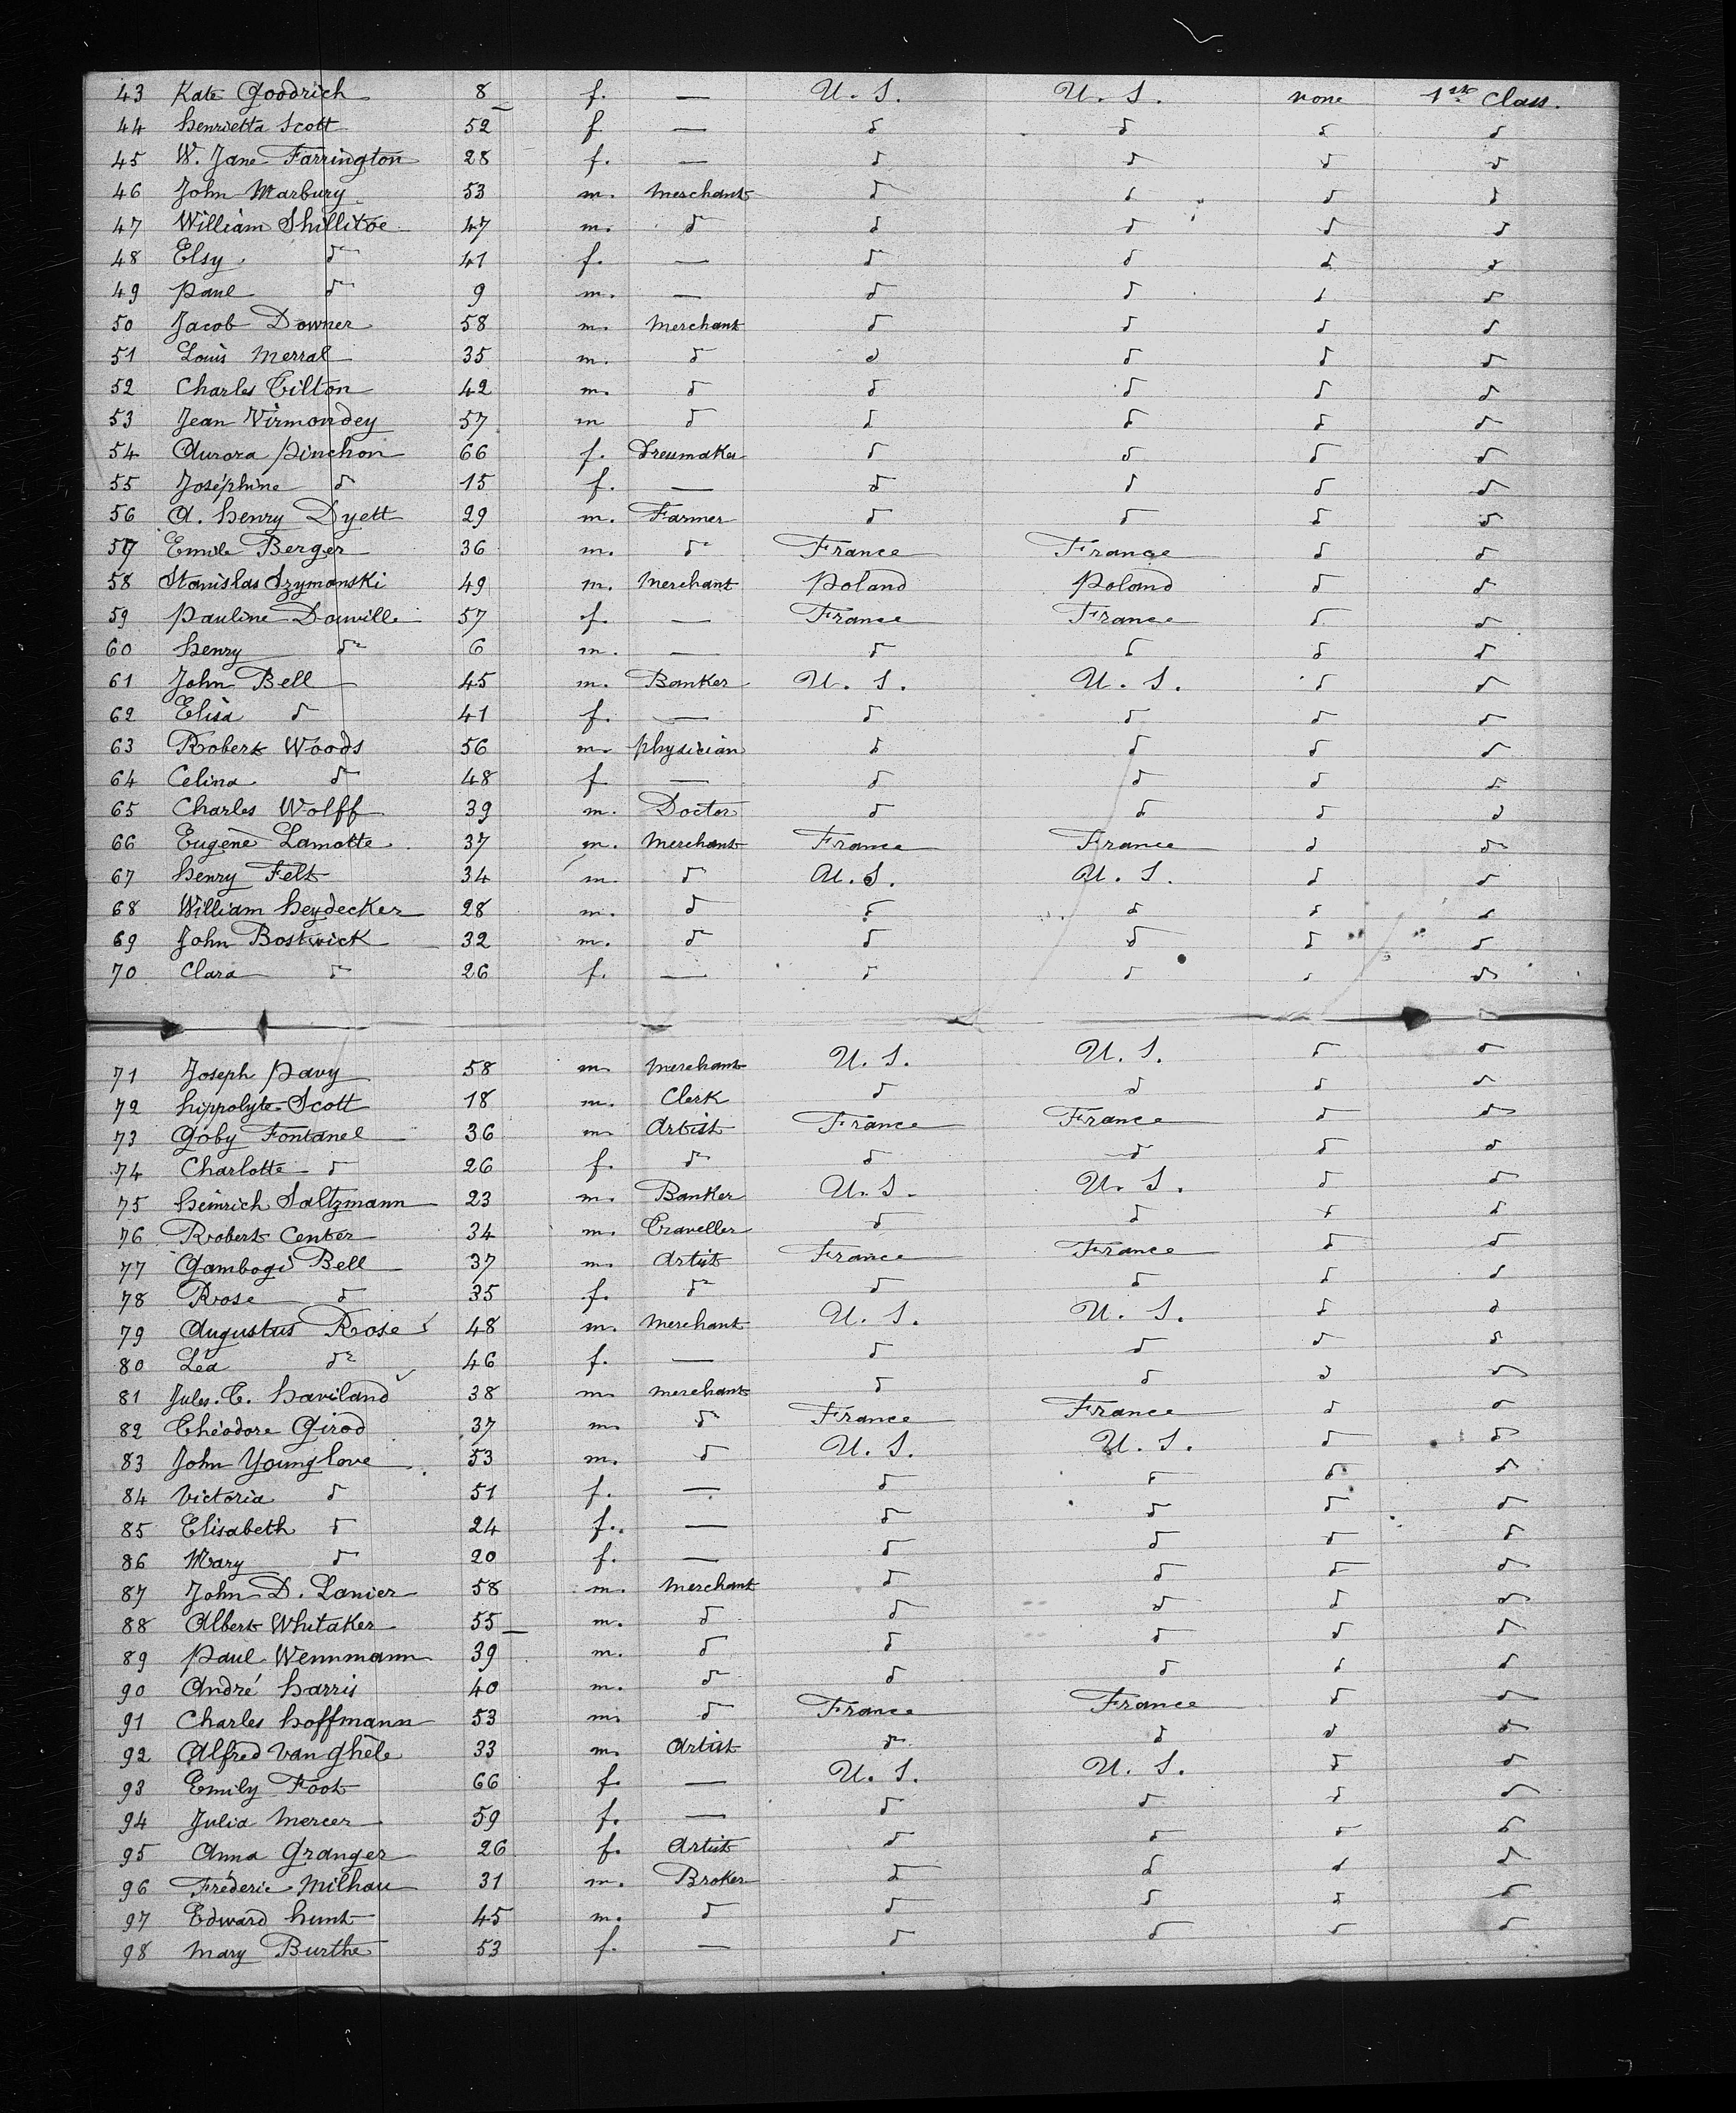 43 Kate Goodrich 8 f. — U. S. U. S. none 1st Class.
44 henrietta Scott 52 f — do do do do
45 W. Jane Farrington 28 f. — do do do do
46 John Marbury 53 m. merchant do do do do
47 William Shillitoe 47 m. do do do do do
48 Elsy do 41 f. — do do do do
49 paul do 9 m. — do do do do
50 Jacob Downer 58 m. merchant do do do do
51 Louis Merral 35 m. do do do do do
52 Charles Tilton 42 m. do do do do do
53 Jean Virmondey 57 m do do do do do
54 Aurora pinchon 66 f. Dressmaker do do do do
55 Joséphine do 15 f. — do do do do
56 A. henry Dyett 29 m. Farmer do do do do
57 Emile Berger 36 m. do France France do do
58 Stanislas Szymanski 49 m. merchant poland poland do do
59 pauline Douville 57 f. — France France do do
60 henry do 6 m. — do do do do
61 John Bell 45 m. Banker U. S. U. S. do do
62 Elisa do 41 f. — do do do do
63 Robert Woods 56 m. physician do do do do
64 Celina do 48 f — do do do do
65 Charles Wolff 39 m. Doctor do do do do
66 Eugène Lamotte 37 m. merchant France France do do
67 henry Felt 34 m. do U. S. U. S. do do
68 William heydecker 28 m. do do do do do
69 John Bostwick 32 m. do do do do do
70 Clara do 26 f. — do do do do
71 Joseph pavy 58 m. merchant U. S. U. S. do do
72 hippolyte Scott 18 m. Clerk do do do do
73 Goby Fontanel 36 m. Artist France France do do
74 Charlotte do 26 f. do do do do do
75 heinrich Saltzmann 23 m. Banker U. S. U. S. do do
76 Robert Center 34 m. Traveller do do do do
77 Gambogi Bell 37 m. Artist France France do do
78 Rose do 35 f. do do do do do
79 Augustus Rose 48 m. merchant U. S. U. S. do do
80 Léa do 46 f. — do do do do
81 Jules. T. haviland 38 m. merchant do do do do
82 Théodore Girod 37 m. do France France do do
83 John Younglove 53 m. do U. S. U. S. do do
84 Victoria do 51 f. — do do do do
85 Elisabeth do 24 f. — do do do do
86 Mary do 20 f. — do do do do
87 John D. Lanier 58 m. merchant do do do do
88 Albert Whitaker 55 m. do do do do do
89 paul Wennmann 39 m. do do do do do
90 André harris 40 m. do do do do do
91 Charles hoffmann 53 m. do France France do do
92 Alfred Van ghèle 33 m. Artist do do do do
93 Emily Foot 66 f. — U. S. U. S. do do
94 Julia mercer 59 f. — do do do do
95 Anna Granger 26 f. Artist do do do do
96 Fréderic Milhau 31 m. Broker do do do do
97 Edward hunt 45 m. do do do do do
98 mary Burthe 53 f. — do do do do